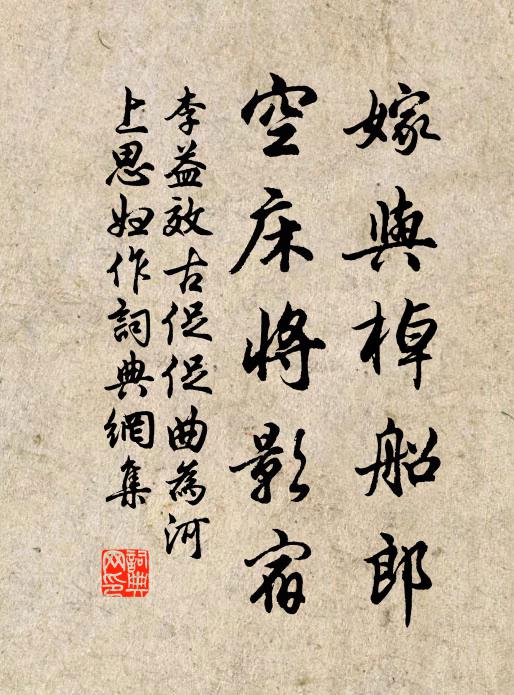 嫁與棹船郎
空床將影宿
李益效古促促曲為河
上思婦作詞典網集
詞典
网印